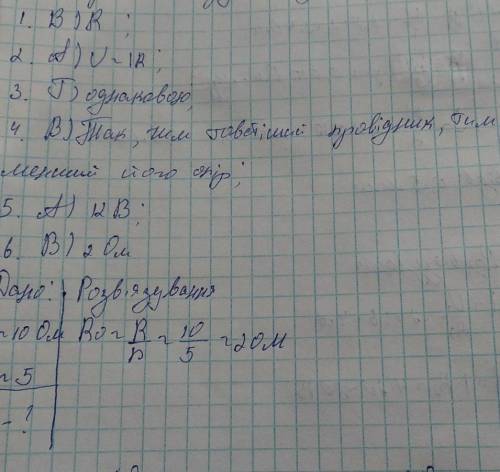 1. В) R ;
2. А) U = IR ;
3. Г) однаковою;
4. В) Так, чим товстіший провідник, тим
менший його опір;
5. А) 12 В;
6. В) 2 Ом
Дано: Розв'язування
= 10 Ом R0 = R/n = 10/5 = 2 Ом
= 5
- ?